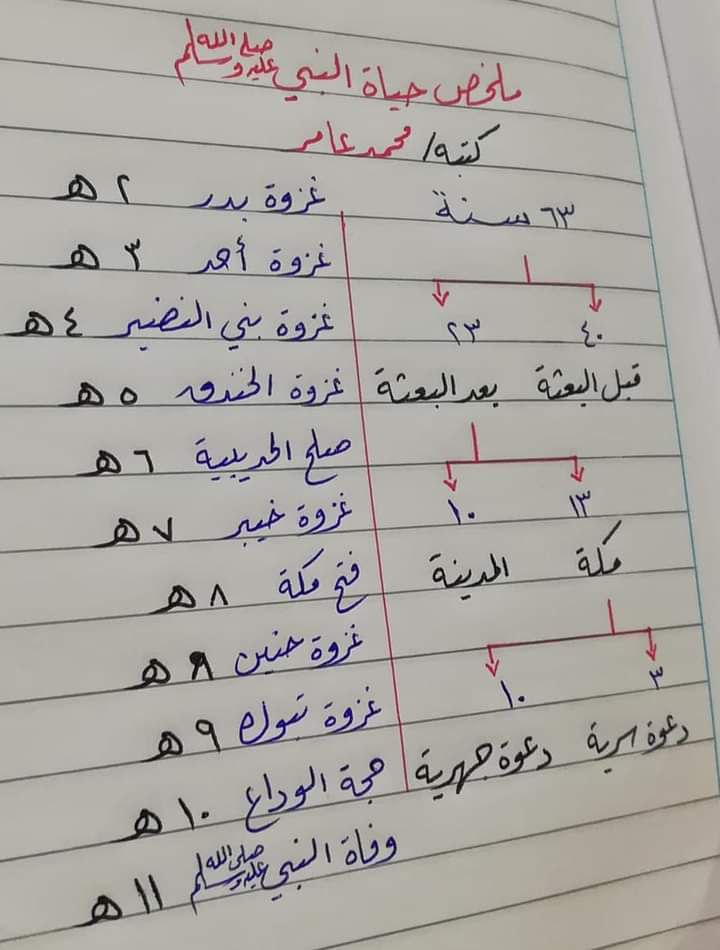 ملخص حياة النبي صلى الله عليه وسلم
كتبه/ محمد عامر
٦٣ سنة
٤٠ ٢٣
قبل البعثة بعد البعثة
١٣ ١٠
مكة المدينة
٣ ١٠
دعوة سرية دعوة جهرية
غزوة بدر ٢ هـ
غزوة أحد ٣ هـ
غزوة بني النضير ٤ هـ
غزوة الخندق ٥ هـ
صلح الحديبية ٦ هـ
غزوة خيبر ٧ هـ
فتح مكة ٨ هـ
غزوة حنين ٨ هـ
غزوة تبوك ٩ هـ
حجة الوداع ١٠ هـ
وفاة النبي صلى الله عليه وسلم ١١ هـ